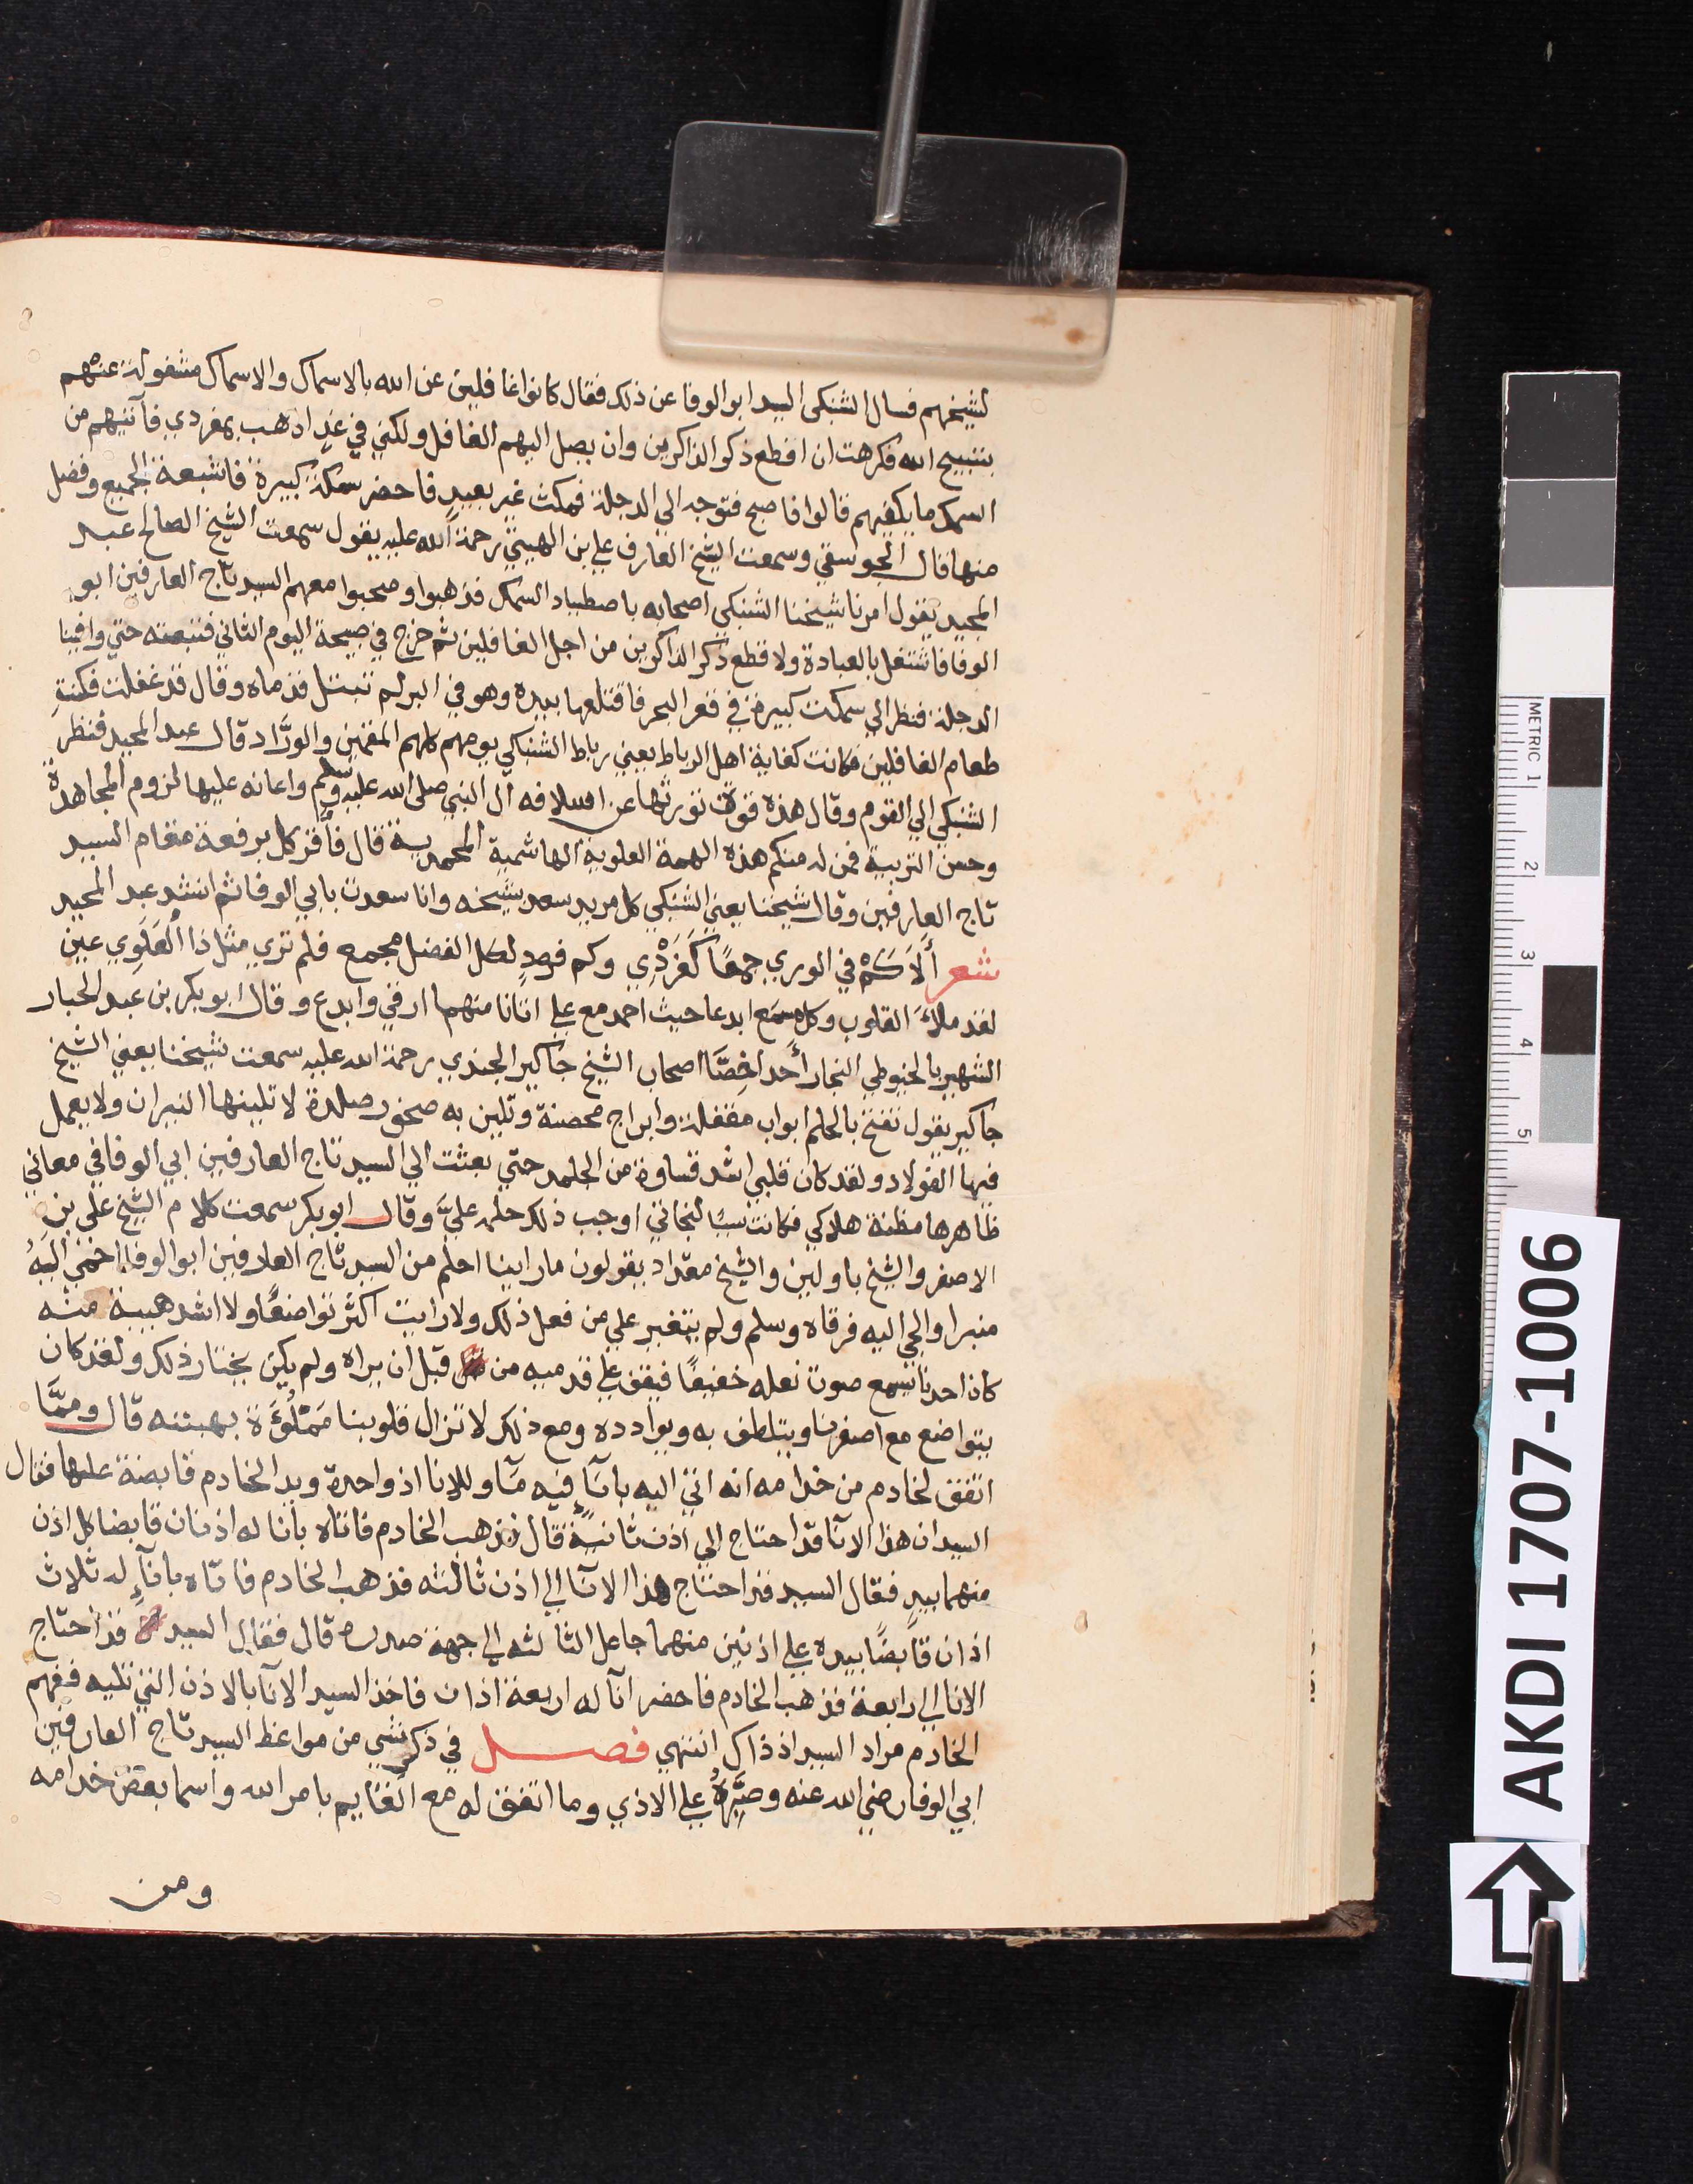 لشيخهم فسال الشنبكي السيد ابو الوفا عن ذلك فقال كانوا غافلين عن الله بالاسماك والاسماك مشغولة عنهم
بتسبيح الله فكرهت ان اقطع ذكر الذاكرين وان يصل اليهم الغافل ولكني في غدٍ اذهب بمفردي فآتيهم من
السمك ما يكفيهم قالوا فاصبح فتوجه الي الدجلة فمكث غير بعيدٍ فاحضر سمكة كبيرة فاشبعة الجميع وفضل
منها قال الجوسقي وسمعت الشيخ العارف علي بن الهيتي رحمة الله عليه يقول سمعت الشيخ الصالح عبد
المجيد يقول امرنا شيخنا الشنبكي اصحابه باصطياد السمك فذهبوا وصحبوا معهم السيد تاج العارفين ابو
الوفا فاشتغل بالعبادة ولا قطع ذكر الذاكرين من اجل الغافلين ثم خرج في صبيحة اليوم الثاني فتبعته حتي وافينا
الدجلة فنظر الي سمكت كبيرة في قعر البحر فاقتلعها بيده وهو في البر لم تبتل قدماه وقال قد غفلت فكنتِ
طعام الغافلين فكانت كفاية اهل الرباط يعني رباط الشنبكي يومهم كلهم المقيمين والورَّاد قال عبد المجيد فنظر
الشنبكي الي القوم وقال هذه قوة تورثها عن اسلافه آل النبي صلى الله عليه وسلم واعانه عليها لزوم المجاهدة
وحسن التربية فمن له منكم هذه الهمة العلوية الهاشمية المحمدية قال فاقر كل برفعة مقام السيد
تاج العارفين وقال شيخنا يعني الشنبكي كل مريد سعد بشيخه وانا سعدت بابي الوفا ثم انشد عبد المجيد
شعر أَلاَ كَمْ في الوري جمعًا كَفَرْدٍ وكم فردٍ لكل الفضل مجمع فلم تري مثل ذا العَلَوِي عين
لقد ملاَءَ القلوب وكل مسمع ابدعا حيث احمد مع علي اتانا منهما ارقي وابدع وقال ابو بكر بن عبد الجبار
الشهير بالخيوطي النجار أحد اخِصَّا اصحاب الشيخ جاكير الجندي رحمة الله عليه سمعت شيخنا يعني الشيخ
جاكير يقول تفتح بالحلم ابواب مقفلة وابراج محصنة وتلين به صخور صلدة لا تلينها النيران ولا يعمل
فيها الفولاد ولقد كان قلبي اشد قساوة من الجلمد حتي بعثت الي السيد تاج العارفين ابي الوفا في معاني
ظاهرها مظنة هلاكي فكانت سببًا لنجاتي اوجب ذلك حلمه عليَّ وقال ابو بكر سمعت كلام الشيخ علي بن
الاصفر والشيخ باولين والشيخ مقداد يقولون ما راينا احلم من السيد تاج العارفين ابو الوفا
منبرا والجي اليه فرقاه وسلم ولم يتغير علي من فعل ذلك ولا رايت اكثر تواضعًا ولا اشد هيبة منه
كان احدنا يسمع صوت نعله خفيفًا فيقف علي قدميه من قبل ان يراه ولم يكن يختار ذلك ولقد كان
يتواضع مع اصغرنا ويتلطف به ويوادده ومع ذلك لا تزال قلوبنا مَمْلُؤَة بهيبته قال وممَّا
اتفق لخادم من خدامه انه اتي اليه باناءٍ فيه مآ وللانا اذ واحدة ويد الخادم قابضة عليها فقال
السيد ان هذا الانآ قد احتاج الي أذن ثانية قال فذهب الخادم فاتاه بانا له اذنان قابضا كل اذن
منهما بيدٍ فقال السيد قد احتاج هذا الانآ الي اذن ثالثه فذهب الخادم فاتاه باناءٍ له ثلاث
اذان قابضًا بيده علي اذنين منهما جاعل الثالثه الي جهة صدره قال فقال السيد قد احتاج
الانا الي رابعة فذهب الخادم فاحضر انآ له اربعة اذان فاخذ السيد الانآ بالاذن التي تليه ففهم
الخادم مراد السيد اذ ذاك انتهي فصل في ذكر شي من مواعظ السيد تاج العارفين
ابي الوفا رضي الله عنه وصَبْرِهُ علي الاذي وما اتفق له مع القايم بامر الله واسما بعض خدامه
ومن
METRIC 1 2 3 4 5
AKDI 1707-1006